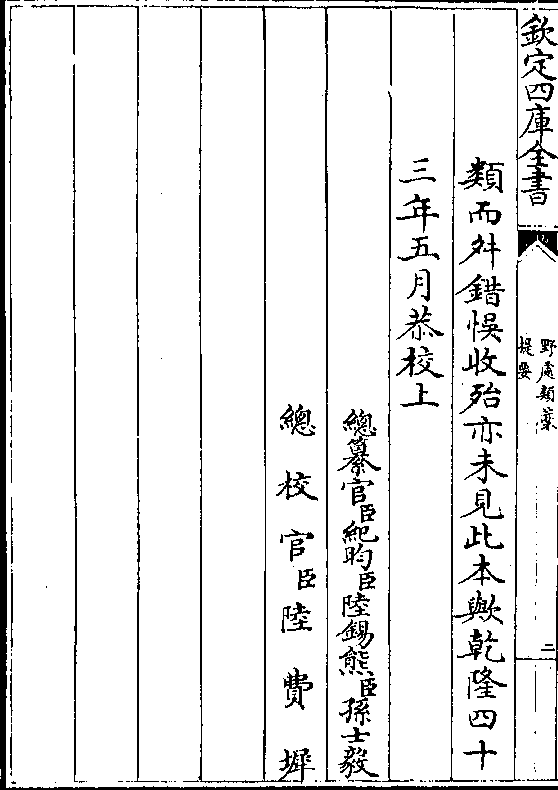 欽定四庫全書
野處類藁
提要
二
類而舛錯悞收殆亦未見此本歟乾隆四十
三年五月恭校上
總纂官臣紀昀臣陸錫熊臣孫士毅
總校官臣陸費墀